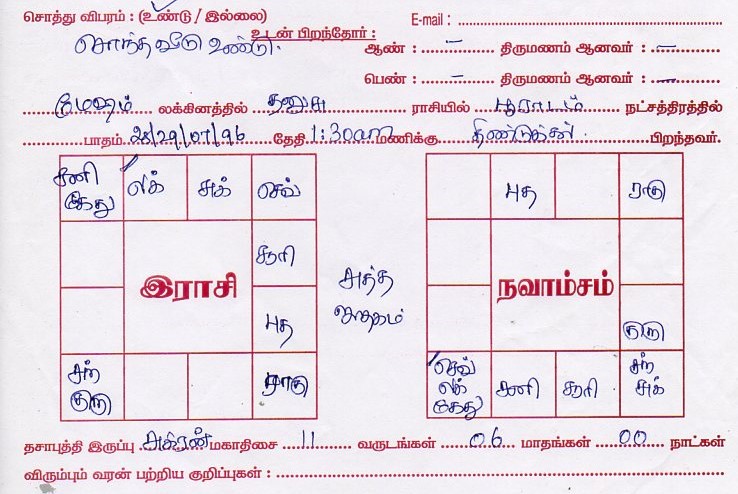 சொத்து விபரம் : (உண்டு / இல்லை) E-mail :
சொந்த வீடு உண்டு. உடன் பிறந்தோர் : ஆண் : – திருமணம் ஆனவர் : –
பெண் : – திருமணம் ஆனவர் : –
மேஷம் லக்கினத்தில் தனுசு ராசியில் பூராடம் நட்சத்திரத்தில்
பாதம் 28/29/07/96 தேதி 1:30am மணிக்கு திண்டுக்கல் பிறந்தவர்.
சனி கேது லக் சுக் செவ்
புத ராகு
சூரி
இராசி
சுத்த ஜாதகம்
நவாம்சம்
புத
குரு
சந் குரு ராகு
செவ் லக் கேது சனி சூரி சந் சுக்
தசாபுத்தி இருப்பு சுக்ரன் மகாதிசை 11 வருடங்கள் 06 மாதங்கள் 00 நாட்கள்
விரும்பும் வரன் பற்றிய குறிப்புகள் :